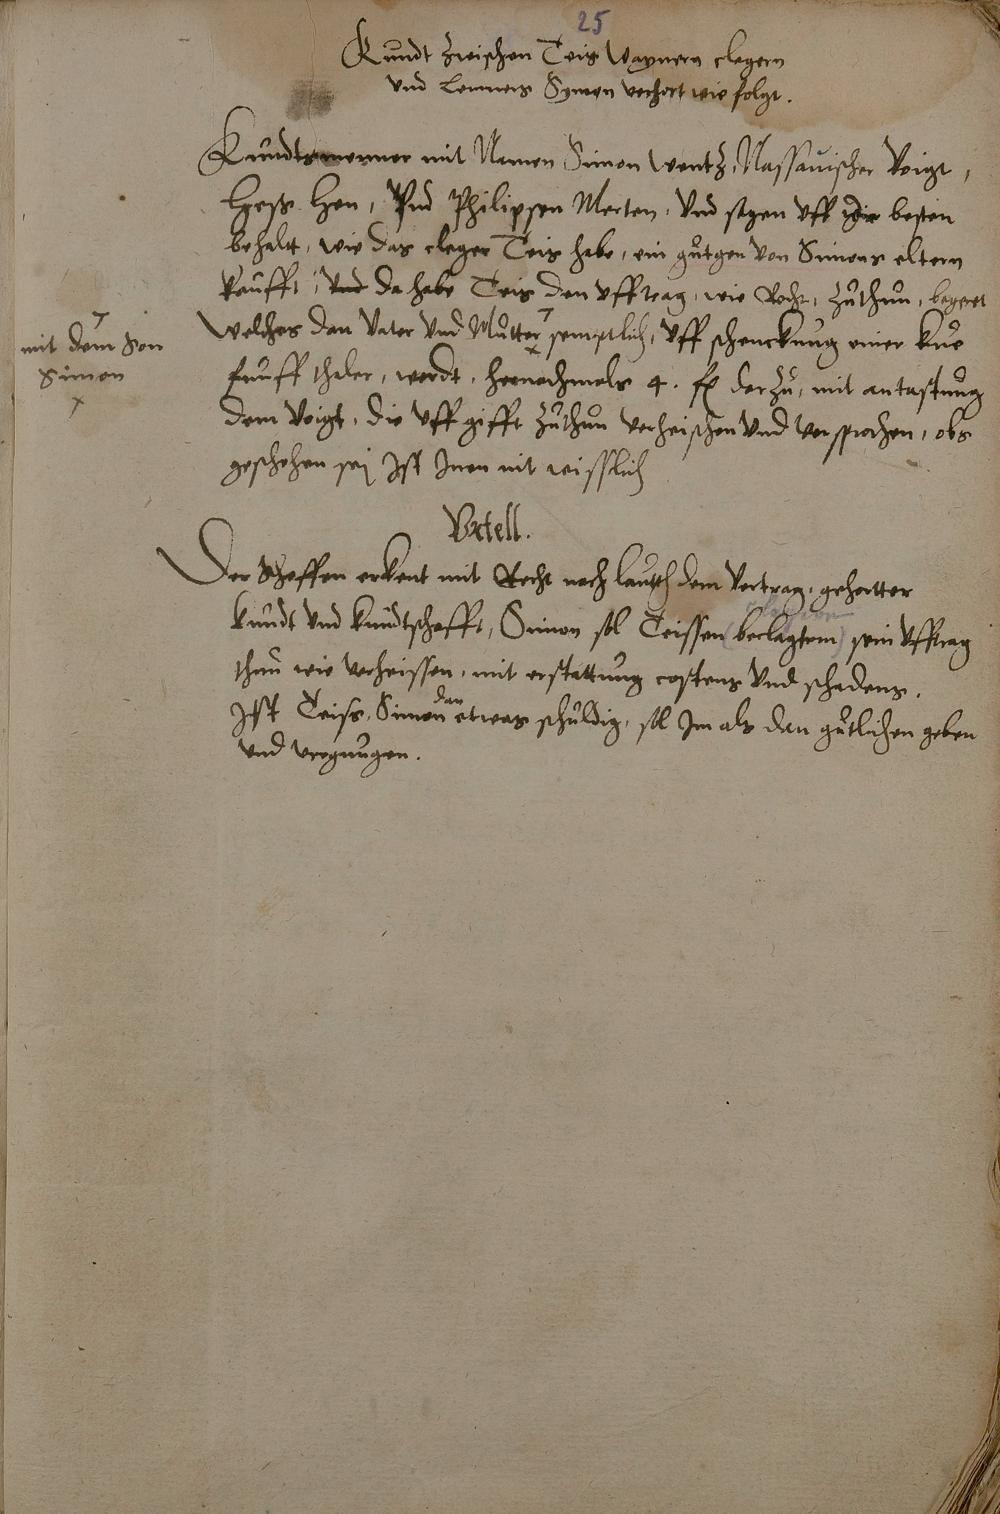 25
Kundt zwischen Teis Wagnern clegern
vnd Lenners Symon verhort wie folgt.
Kundtsmenner mit Namen Simon Wentz, Nassauischer Voigt,
Hess Hen, Vnd Philipsen Merten, Vnd sagen vff ire besten
behalt, wie das cleger Teis habe, ein gůtgen von Simons eltern
kaufft, vnd da habe Teis den vfftrag, wie Recht, zůthůn, begeret
Welches dan Vater Vnd Můtter semptlich, vff schenckung einer kůe
funff thaler, werdt, hernachmals 4. fl darzů, mit antastung
mit dem Son
Simon
dem Voigt, die vffgifft zůthůn verheischen vnd versprochen, obs
geschehen sej Ist Inen nit wisslich
Vrtell.
Der Scheffen erkent mit Recht nach lauth dem Vertrag, gehortter
kůndt vnd kůndtschafft, Simon sol Teissen (beclagtem) sein vfftrag
thun wie verheissen, mit erstattung costens vnd schadens.
Ist Teiss, Simon dan etwas schůldig, sol Im als dan gůtlichen geben
vnd vregnugen.